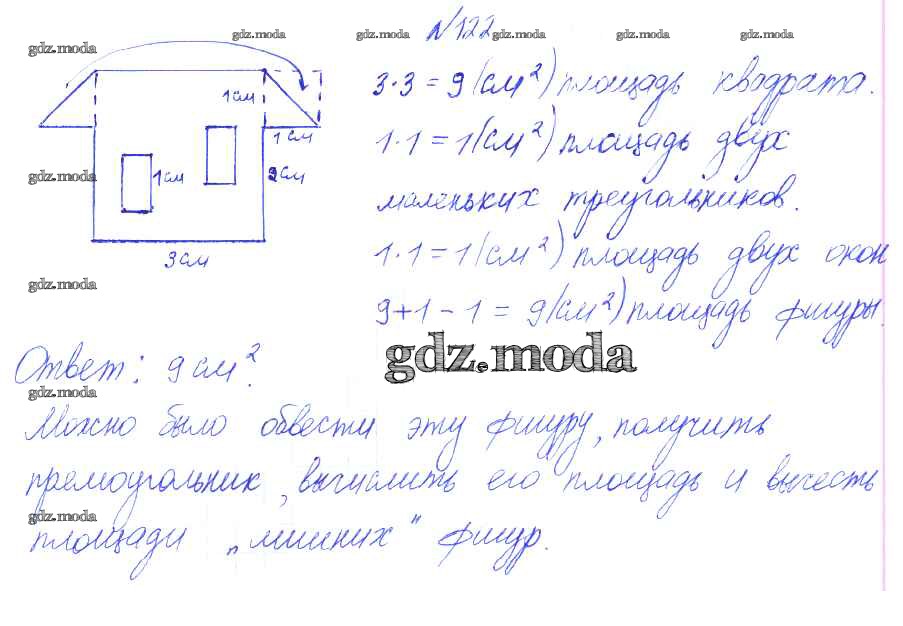 №122
gdz.moda gdz.moda gdz.moda gdz.moda gdz.moda
gdz.moda
1см
1см
1см
2см
3см
gdz.moda
gdz.moda
3·3=9(см²) площадь квадрата.
1·1=1(см²) площадь двух
маленьких треугольников.
1·1=1(см²) площадь двух окон
9+1-1=9(см²) площадь фигуры.
gdz.moda
Ответ: 9см².
gdz.moda
Можно было обвести эту фигуру, получить
прямоугольник, вычислить его площадь и вычесть
gdz.moda
площади „лишних" фигур.